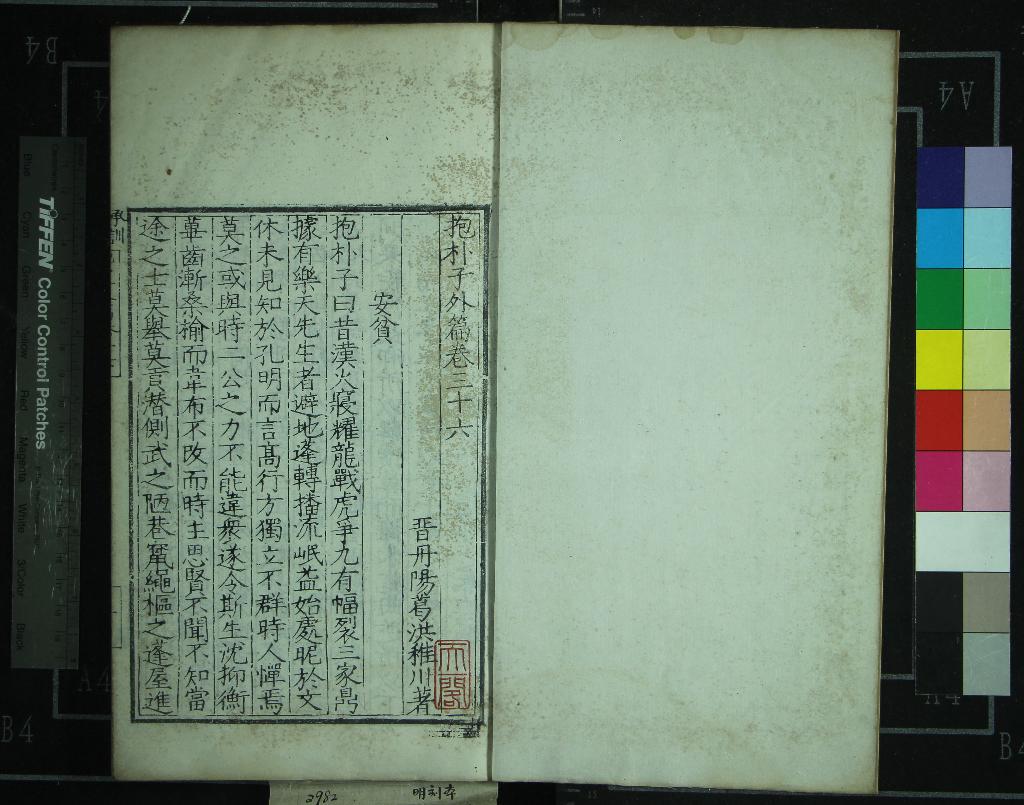 抱朴子外篇卷三十六
晋丹陽葛洪稚川著
安貧
抱朴子曰昔漢火寢耀龍戰虎爭九有幅裂三家鼎
據有樂天先生者避地蓬轉播流岷益始處昵於文
休未見知於孔明而言高行方獨立不群時人憚焉
莫之或與時二公之力不能違衆遂令斯生沈抑衡
蓽齒漸桑榆而韋布不改而時主思賢不聞不知當
途之士莫舉莫貢潛側武之陋巷竄繩樞之蓬屋進
承訓
TIFFEN Color Control Patches
Blue
Cyan
Green
Yellow
Red
Magenta
White
3/Color
Black
B4
A4
A4
B4
A4
B4
2982
明刻本